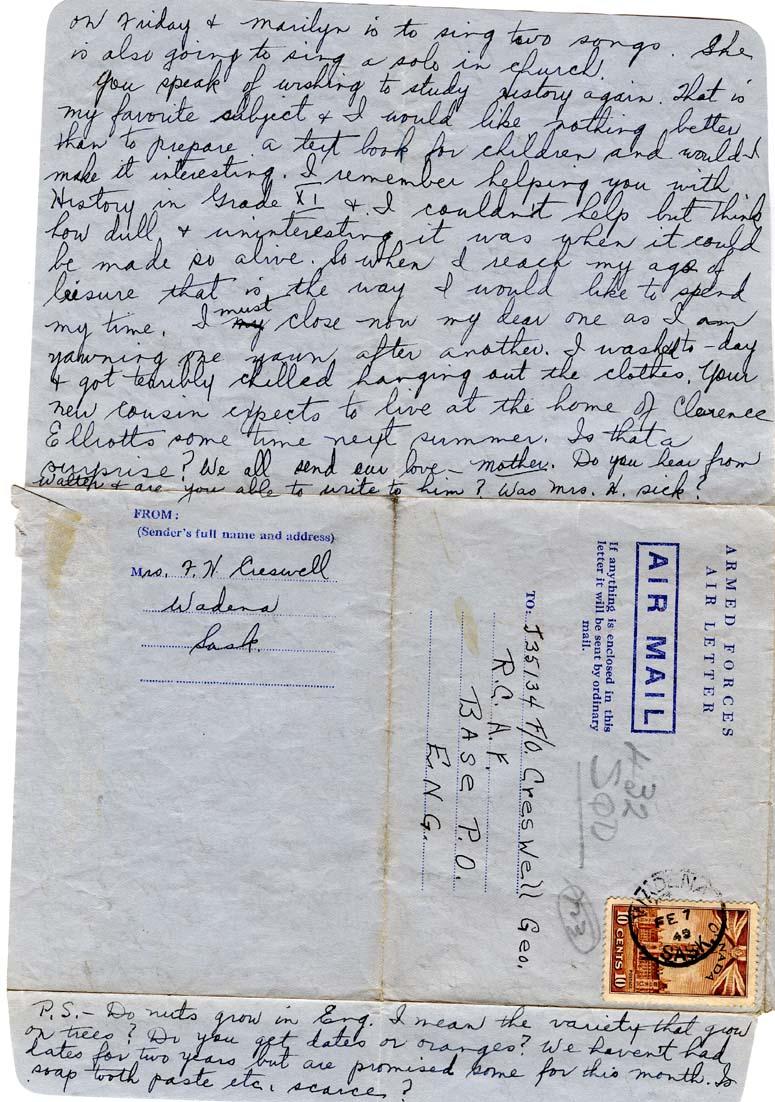 on Friday & marilyn is to sing two songs. She
is also going to sing a solo in church.
You speak of wishing to study History again. That is
my favorite subject & I would like nothing better
than to prepare a text book for children and would I
make it interesting. I remember helping you with
History in Grade XI & I couldn't help but think
how dull & uninteresting it was when it could
be made so alive. So when I reach my age of
leisure that is the way I would like to spend
my time. I must close now my dear one as I am
yawning one yawn after another. I washed to-day
& got terribly chilled hanging out the clothes. Your
new cousin expects to live at the home of Clarence
Elliotts some time next summer. Is that a
surprise? We all send our love - mother. Do you hear from
Walter & are you able to write to him? Was Mrs. H. sick?
FROM:
(Sender's full name and address)
Mrs. F. H. Creswell
Wadena
Sask.
ARMED FORCES
AIR LETTER
AIR MAIL
If anything is enclosed in this
letter it will be sent by ordinary
mail.
TO: J35134 F/O. Creswell Geo.
R.C.A.F.
Base P.O.
ENG.
432
SQD
WADENA
FE 7
SASK
CANADA
10 CENTS 10
P.S. - Do nuts grow in Eng. I mean the variety that grow
on trees? Do you get dates or oranges? We havent had
dates for two years but are promised some for this month. Is
soap tooth paste etc. scarce?